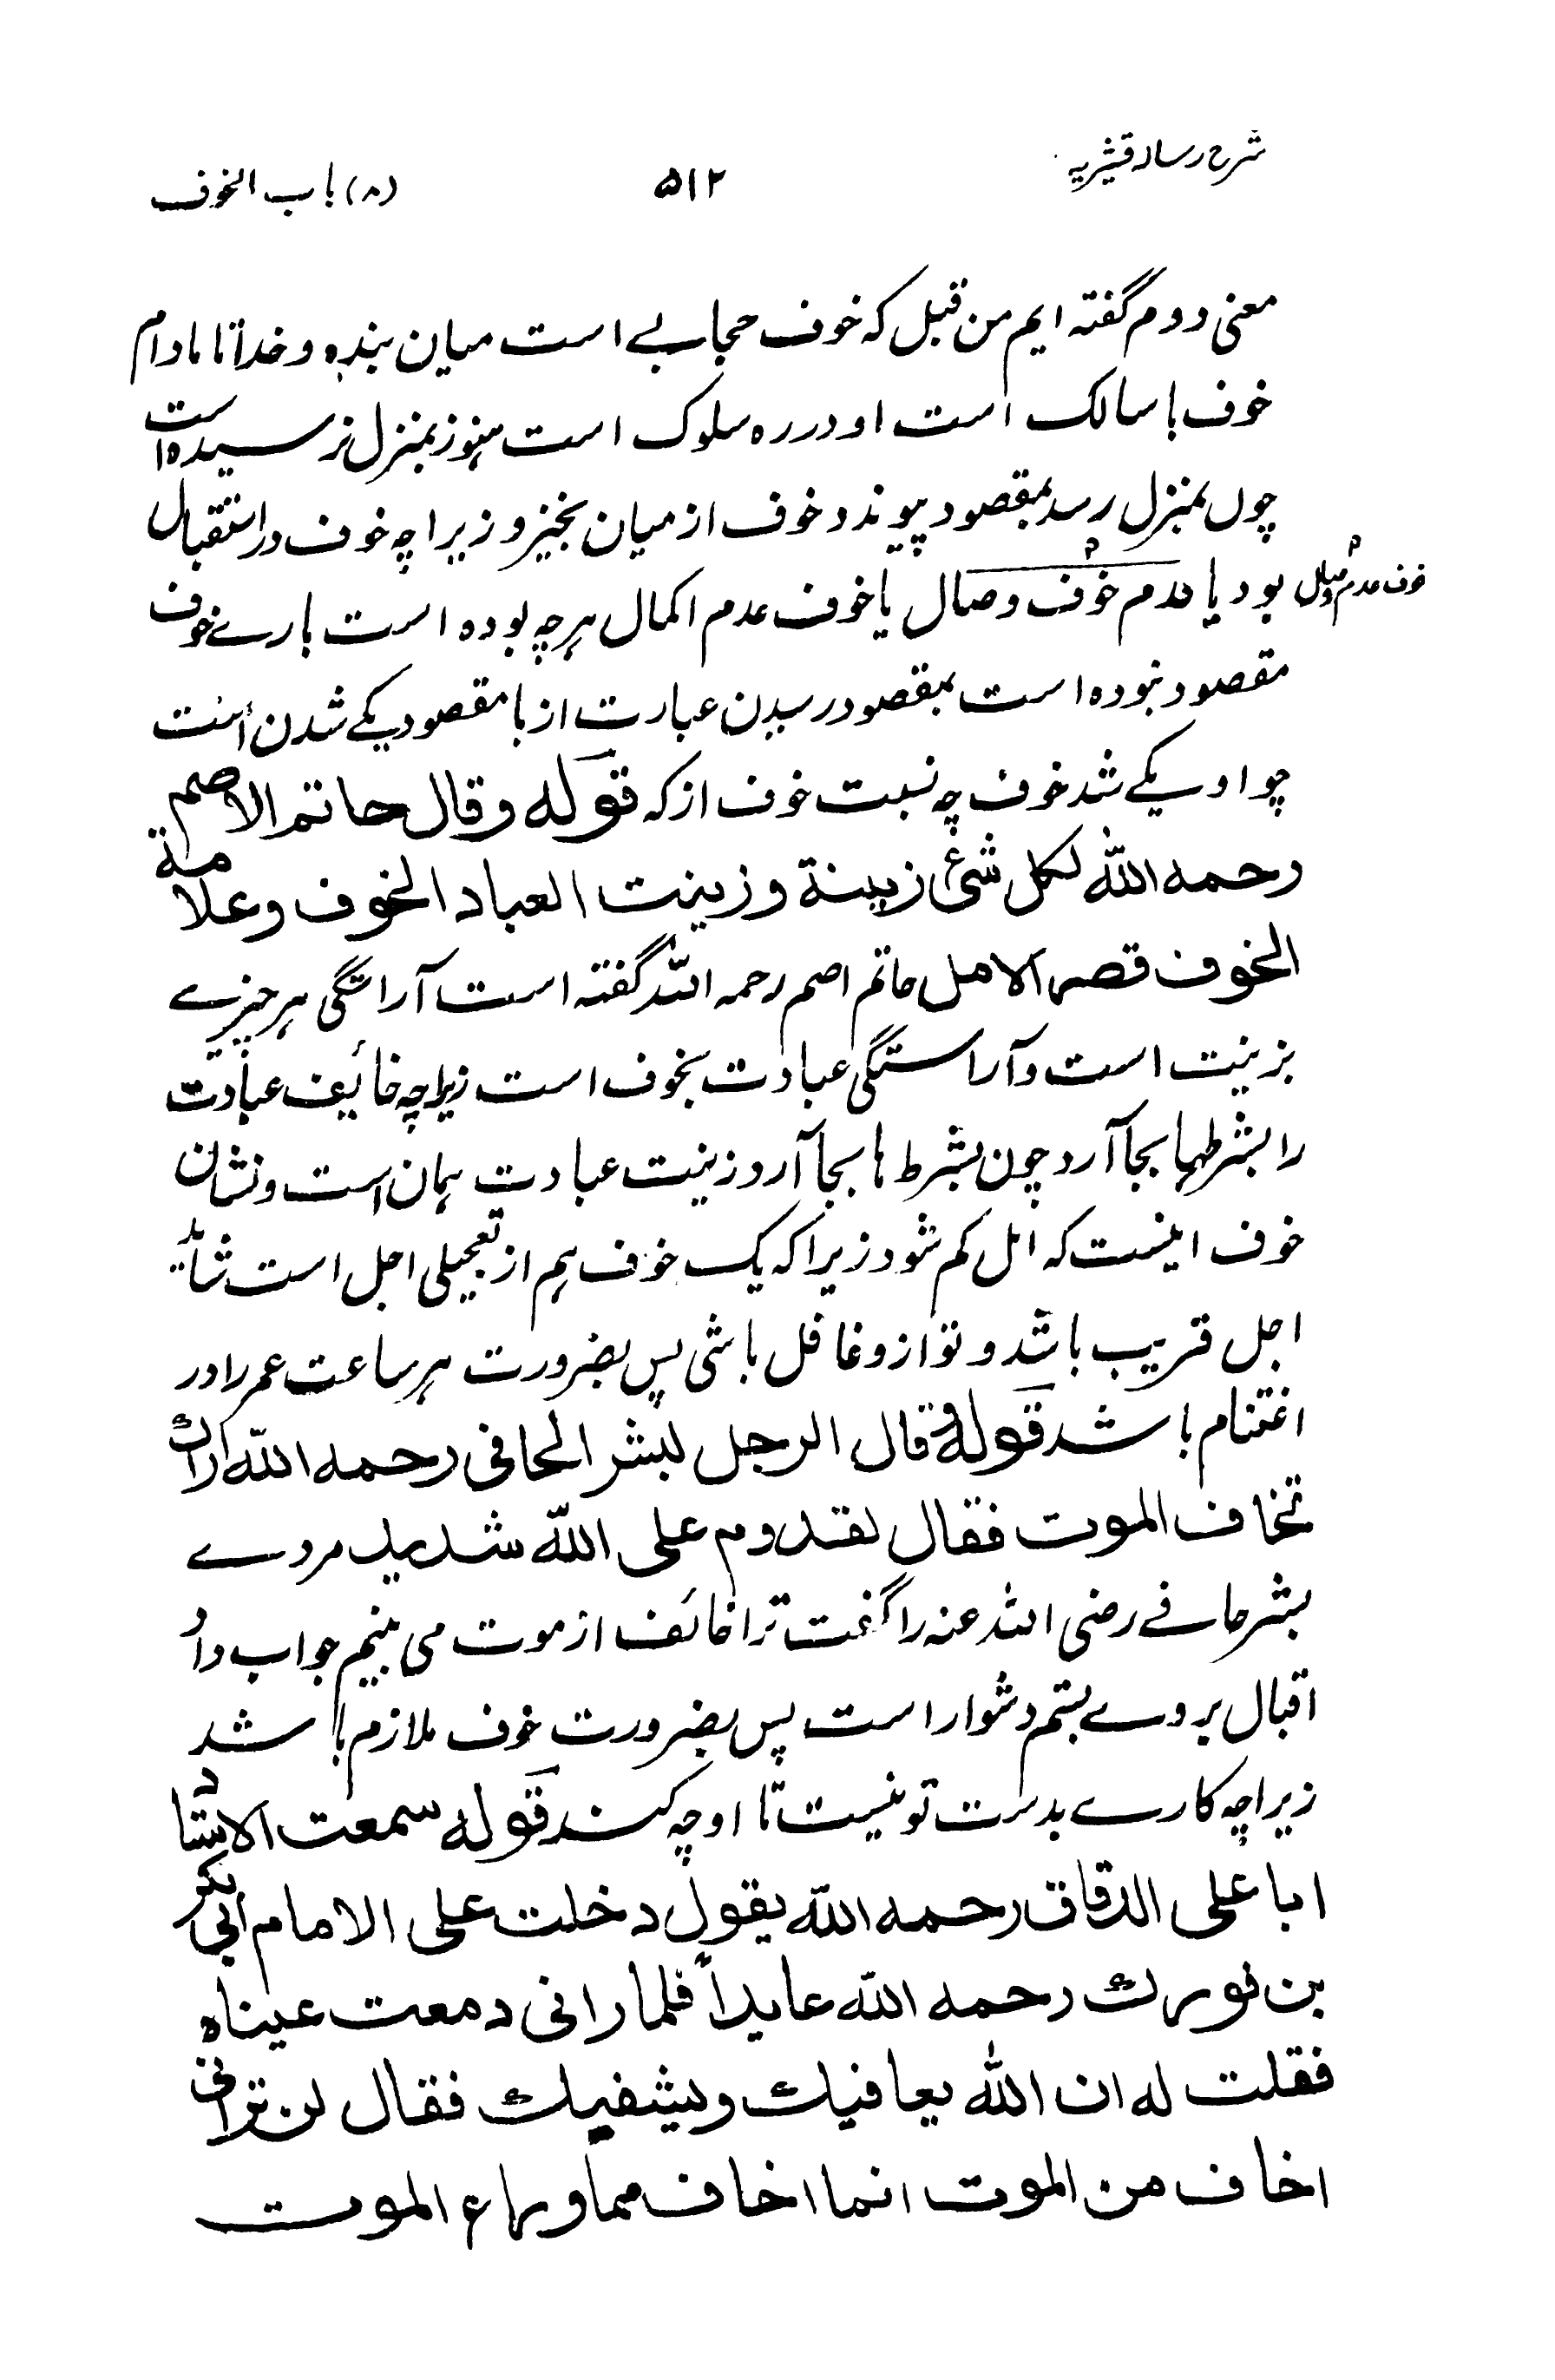 شرح رسالہ قشیریہ
۵۱۲
(۸) باب الخوف
معنی دوم گفتہ ایم من قبل کہ خوف حجابے است میان بندہ و خدا تا مادام
خوف با سالک است او در رہ سلوک است ہنوز بمنزل نرسیدہ است
چوں بمنزل رسد بمقصود پیوندد خوف از میان بخیزد زیراچہ خوف در استقبال
بود یا عدم خوف وصال یا خوف عدم اکمال ہرچہ بودہ است بارے خوف
خوف عدم وصال
مقصود نبودہ است بمقصود رسیدن عبارت از با مقصود یکے شدن است
چو او یکے شد خوف چہ نسبت خوف از کہ قوله وقال حاتم الاصم
رحمه الله لكل شئ زينة وزينت العباد الخوف وعلامة
الخوف قصر الامل حاتم اصم رحمہ اللہ گفتہ است آراستگی ہر چیزے
بزینت است و آراستگی عبادت بخوف است زیراچہ خائیف عبادت
را بشرطہا بجا آرد چون بشرط ہا بجا آرد زینت عبادت ہمان است و نشان
خوف اینست کہ امل کم شود زیرا کہ یک خوف ہم از تعجیلی اجل است شاید
اجل قریب باشد و تو ازو غافل باشی پس بضرورت ہر ساعت عمر را در
اغتنام باشد قوله وقال الرجل لبشر الحافى رحمه الله اراك
تخاف الموت فقال لقدوم على الله شديد مردے
بشر حافے رضی اللہ عنہ را گفت ترا خائف از موت می بینم جواب داد
اقبال بروے بستم دشوار است پس بضرورت خوف ملازم باشد
زیراچہ کارے بدست تو نیست تا او چہ کند قوله سمعت الاستاد
ابا على الدقاق رحمه الله يقول دخلت على الامام ابى بكر
بن فورك رحمه الله عايداً فلما رانى دمعت عيناه
فقلت له ان الله يعافيك ويشفيك فقال لن ترانى
اخاف من الموت انما اخاف مما وراء الموت